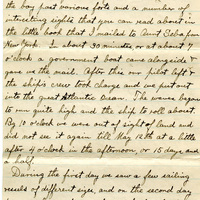 the bay past various forts and a number of
interesting sights that you can read about in
the little book that I mailed to Aunt
New York. In about 30 minutes or at about 7
o'clock a government boat came alongside &
gave us the mail. After this our pilot left &
the ship's crew took charge and we put out
into the great Atlantic Ocean. The waves began
to run quite high and the ship to roll about.
By 10 o'clock we were out of sight of land and
did not see it again till May 12th at a little
after 4 o'clock in the afternoon, or 15 days and
a half.
During the first day we saw a few sailing
vessels of different sizes, and on the second day